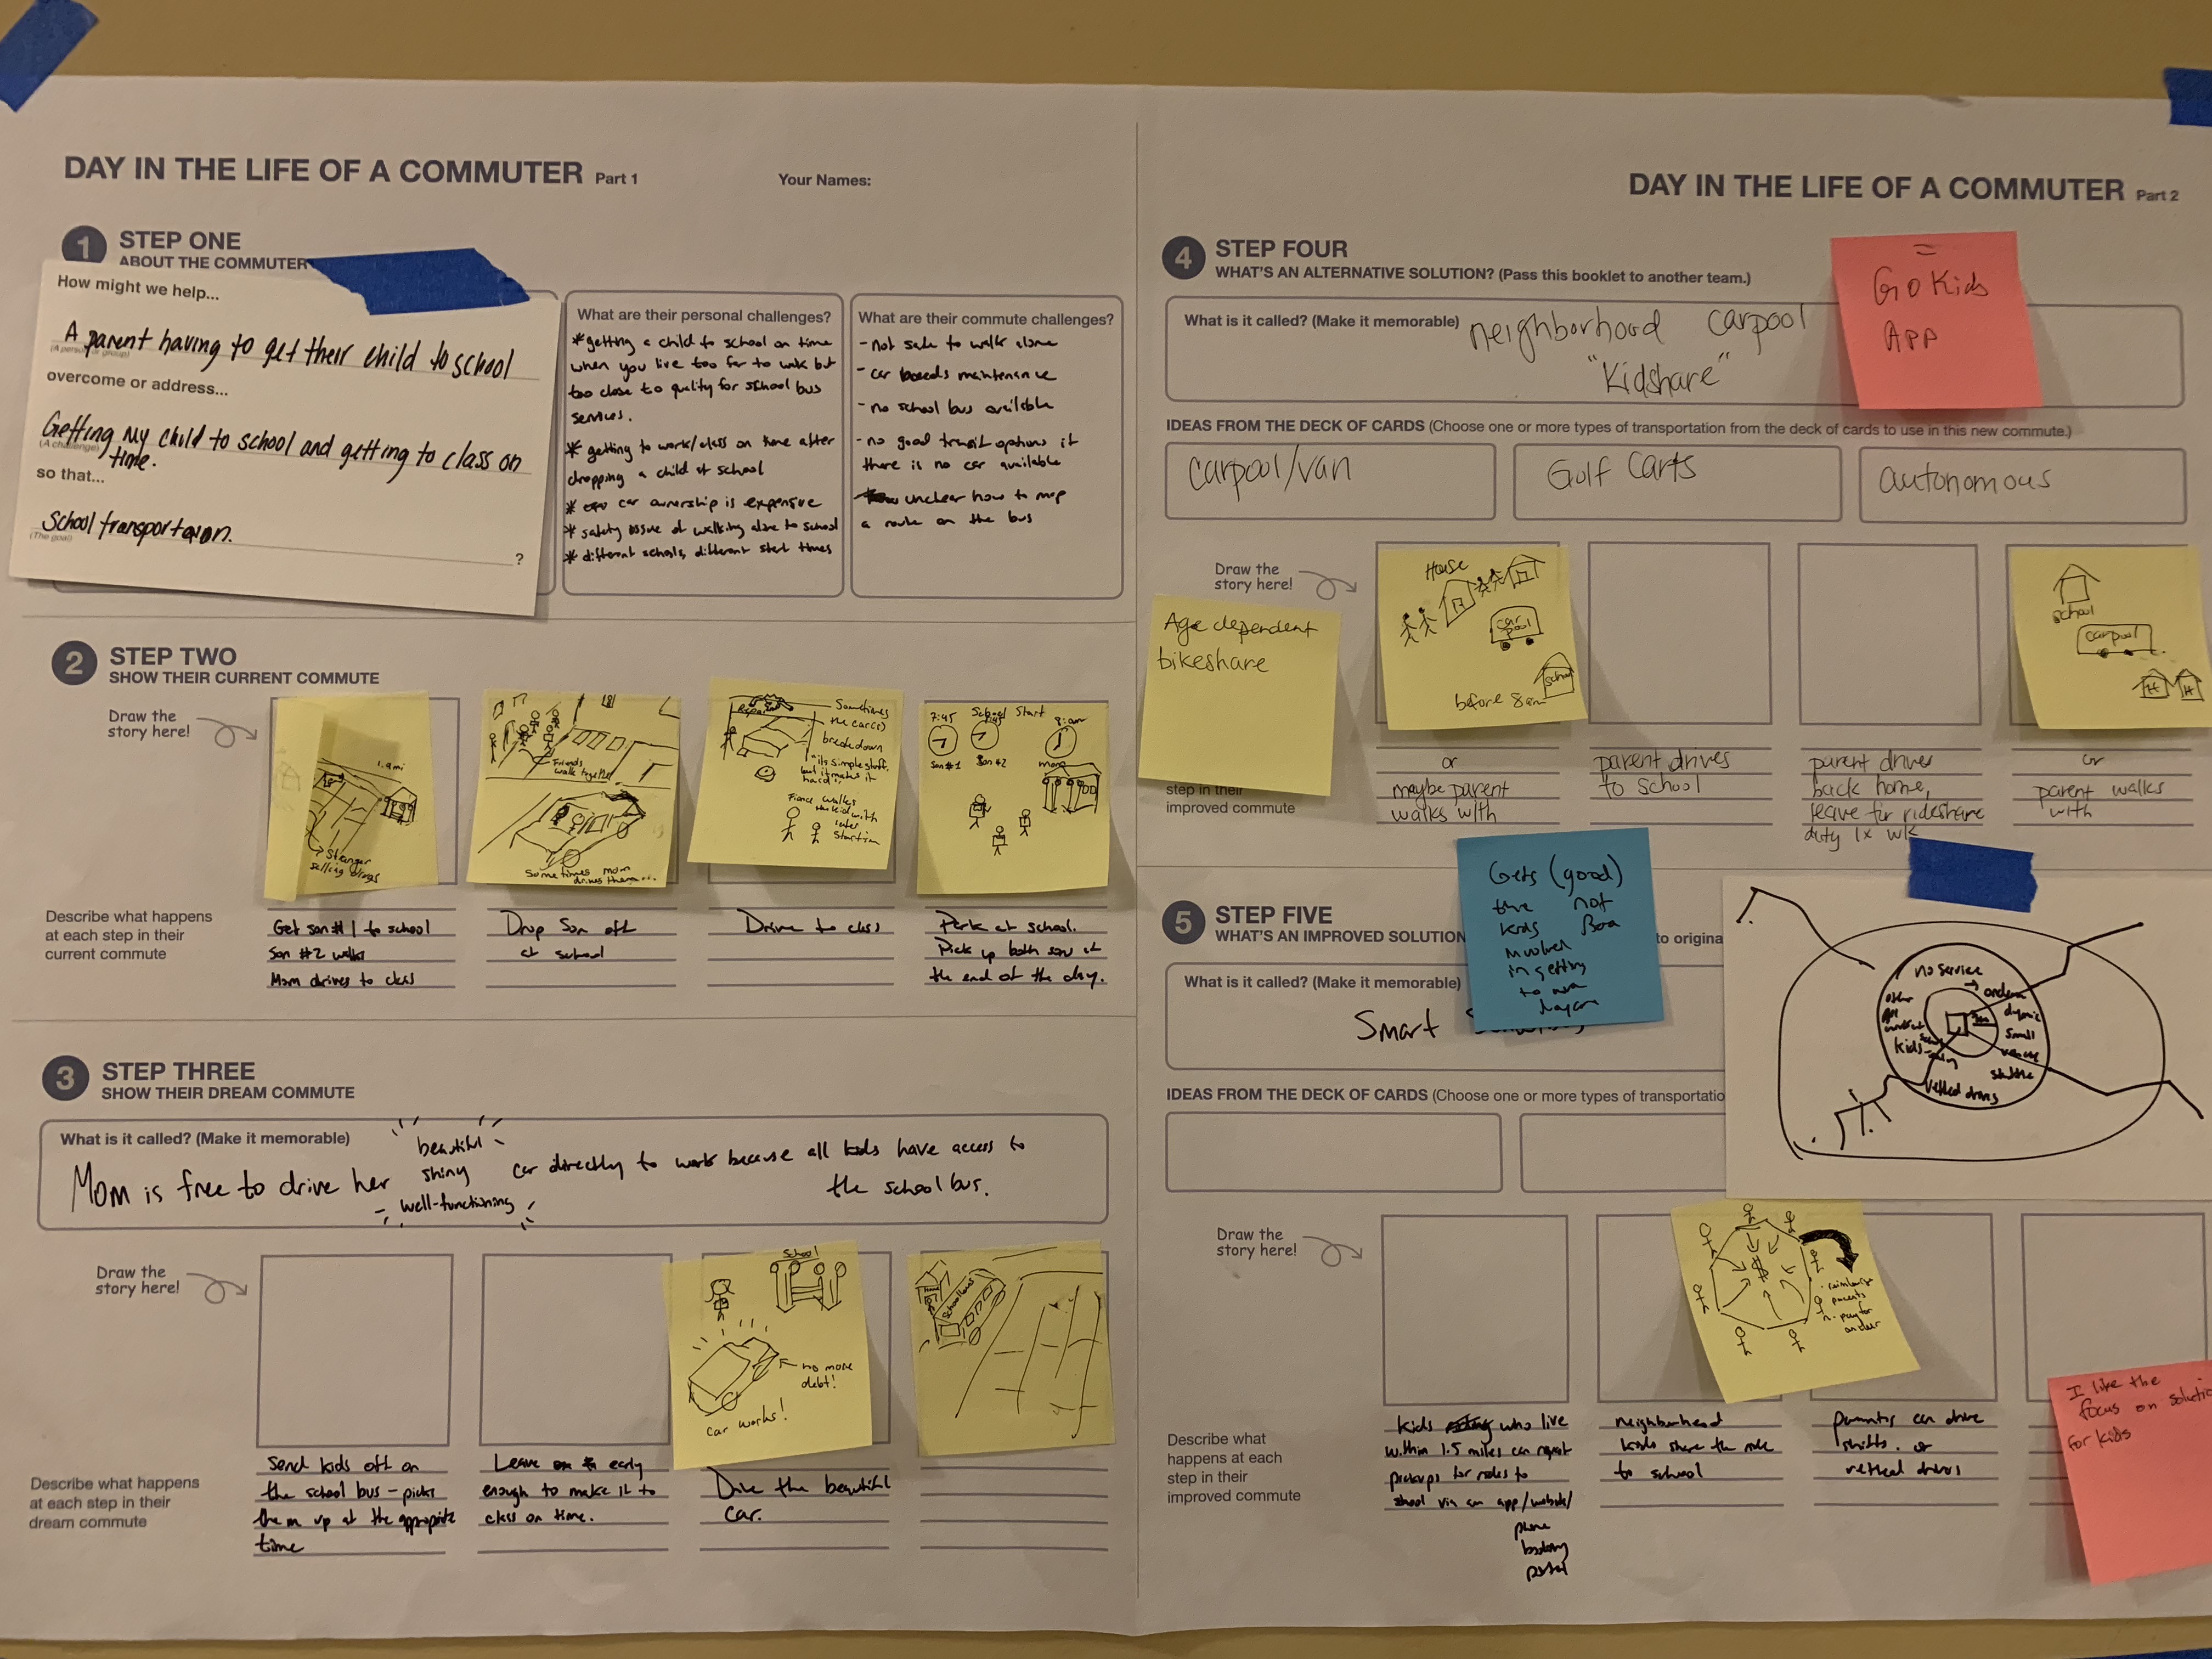 DAY IN THE LIFE OF A COMMUTER Part 1
Your Names:
1 STEP ONE
ABOUT THE COMMUTER
How might we help...
A parent having to get their child to school
overcome or address...
Getting my child to school and getting to class on
(A challenge)
time.
so that...
School transportation.
(The goal)
?
What are their personal challenges?
*getting a child to school on time
when you live too far to walk but
too close to qualify for school bus
services.
* getting to work/class on time after
dropping a child at school
* car ownership is expensive
* safety issue of walking alone to school
* different schools, different start times
What are their commute challenges?
- not safe to walk alone
- car needs maintenance
- no school bus available
- no good transit options if
there is no car available
- unclear how to map
a route on the bus
2 STEP TWO
SHOW THEIR CURRENT COMMUTE
Draw the
story here!
Stranger
selling drugs
Friends
walk together
Sometimes mom
drives them...
Repair
Sometimes
the car(s)
breakdown
its simple stuff.
but it makes it
hard.
Fiance walks
the kid with
later
start time
School Start
7:45
8:am
Son #1
Son #2
mom
Describe what happens
at each step in their
current commute
Get son #1 to school
Son #2 walks
Mom drives to class
Drop Son off
at school
Drive to class
Park at school.
Pick up both sons at
the end of the day.
3 STEP THREE
SHOW THEIR DREAM COMMUTE
What is it called? (Make it memorable)
Mom is free to drive her
beautiful
shiny
well-functioning
car directly to work because all kids have access to
the school bus.
Draw the
story here!
School
no more
debt!
car works!
School bus
Describe what happens
at each step in their
dream commute
Send kids off on
the school bus - picks
them up at the appropriate
time
Leave early
enough to make it to
class on time.
Drive the beautiful
car.
DAY IN THE LIFE OF A COMMUTER Part 2
4 STEP FOUR
WHAT'S AN ALTERNATIVE SOLUTION? (Pass this booklet to another team.)
What is it called? (Make it memorable)
neighborhood carpool
"Kidshare"
=
Go Kids
App
IDEAS FROM THE DECK OF CARDS (Choose one or more types of transportation from the deck of cards to use in this new commute.)
carpool/van
Golf Carts
autonomous
Draw the
story here!
Age dependent
bikeshare
House
car
pool
school
before 8am
school
carpool
H H
step in their
improved commute
or
maybe parent
walks with
parent drives
to school
parent drives
back home,
leave for rideshare
duty 1x wk
or
parent walks
with
5 STEP FIVE
WHAT'S AN IMPROVED SOLUTION
to origina
What is it called? (Make it memorable)
Smart
Gets (good)
the not
kids
involved
in getting
to
IDEAS FROM THE DECK OF CARDS (Choose one or more types of transportatio
no service
small
kids
shuttle
vetted drivers
Draw the
story here!
$
parents
pay for
I like the
focus on solutio
for kids
Describe what
happens at each
step in their
improved commute
kids who live
within 1.5 miles can request
pickups for rides to
school via an app/website/
phone
booking
portal
neighborhood
kids share the ride
to school
parents can drive
shifts. or
vetted drivers